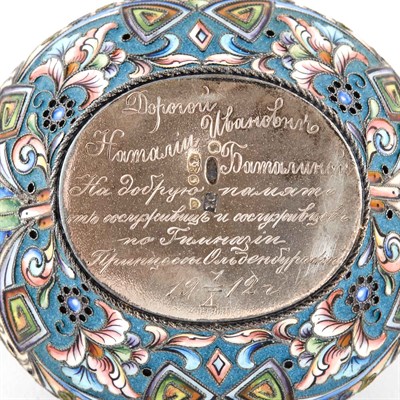 Дорогой
Наталіи Ивановнѣ
Баталиной
На добрую память
отъ сослуживицъ и сослуживцевъ
по Гимназіи
Принцессы Ольденбургской
19 1/1 12 г.